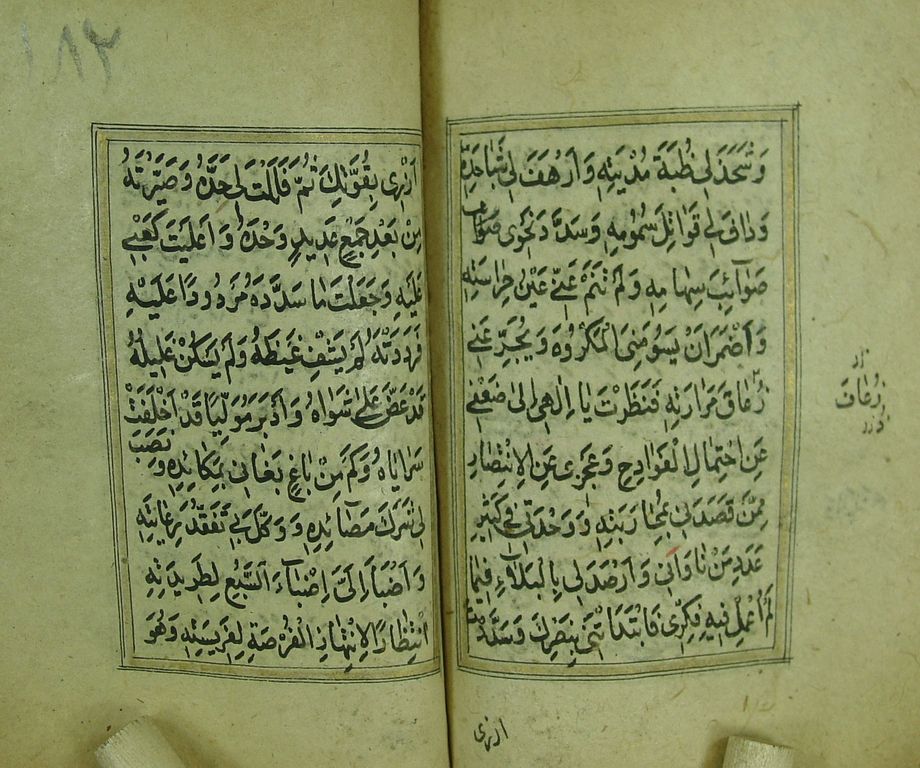 وَشَحَذَ لِي ظُبَةَ مُدْيَتِهِ وَاَرْهَفَ لِي شَبَا حَدِّهِ
وَدَافَ لِي قَوَاتِلَ سُمُومِهِ وَسَدَّدَ نَحْوِى صَوَآئِبَ
صَوَآئِبَ سِهَامِهِ وَلَمْ تَنَمْ عَنِّى عَيْنُ حِرَاسَتِهِ
وَاَضْمَرَ اَنْ يَسُومَنِى الْمَكْرُوهَ وَيُجَرِّعَنِى
زُعَاقَ مَرَارَتِهِ فَنَظَرْتَ يَا اِلٰهِى اِلٰى ضَعْفِى
عَنِ احْتِمَالِ الْفَوَادِحِ وَعَجْزِى عَنِ الاِنْتِصَارِ
مِمَّنْ قَصَدَنِى بِمُحَارَبَتِهِ وَوَحْدَتِى فِى كَثِيرِ
عَدَدِ مَنْ نَاوَانِى وَاَرْصَدَ لِى بِالْبَلَآءِ فِيمَا
لَمْ اُعْمِلْ فِيهِ فِكْرِى فَابْتَدَاْتَنِى بِنَصْرِكَ وَشَدَدْتَ
زعاق
ازرى
١٨٢
اَزْرِى بِقُوَّتِكَ ثُمَّ فَلَلْتَ لِى حَدَّهُ وَصَيَّرْتَهُ
مِنْ بَعْدِ جَمْعٍ عَدِيدٍ وَحْدَهُ وَاَعْلَيْتَ كَعْبِى
عَلَيْهِ وَجَعَلْتَ مَا سَدَّدَهُ مَرْدُودًا عَلَيْهِ
فَرَدَدْتَهُ لَمْ يَشْفِ غَيْظَهُ وَلَمْ يَسْكُنْ غَلِيلُهُ
قَدْ عَضَّ عَلٰى شَوَاهُ وَاَدْبَرَ مُوَلِّيًا قَدْ اَخْلَفَتْ
سَرَايَاهُ وَكَمْ مِنْ بَاغٍ بَغَانِى بِمَكَائِدِهِ وَنَصَبَ
لِى شَرَكَ مَصَآئِدِهِ وَوَكَّلَ بِى تَفَقُّدَ رِعَايَتِهِ
وَاَضْبَاَ اِلَىَّ اِضْبَآءَ السَّبُعِ لِطَرِيدَتِهِ
انْتِظَارًا لِانْتِهَازِ الْفُرْصَةِ لِفَرِيسَتِهِ وَهُوَ